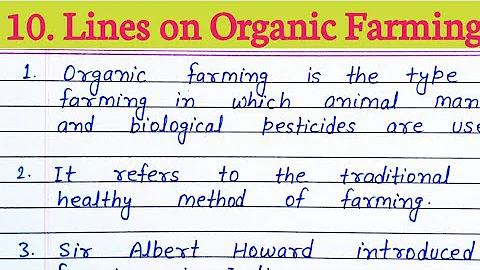 10. Lines on Organic Farming
1. Organic farming is the type
farming in which animal man
and biological pesticides are use
2. It refers to the traditional
healthy method of farming.
3. Sir Albert Howard introduced